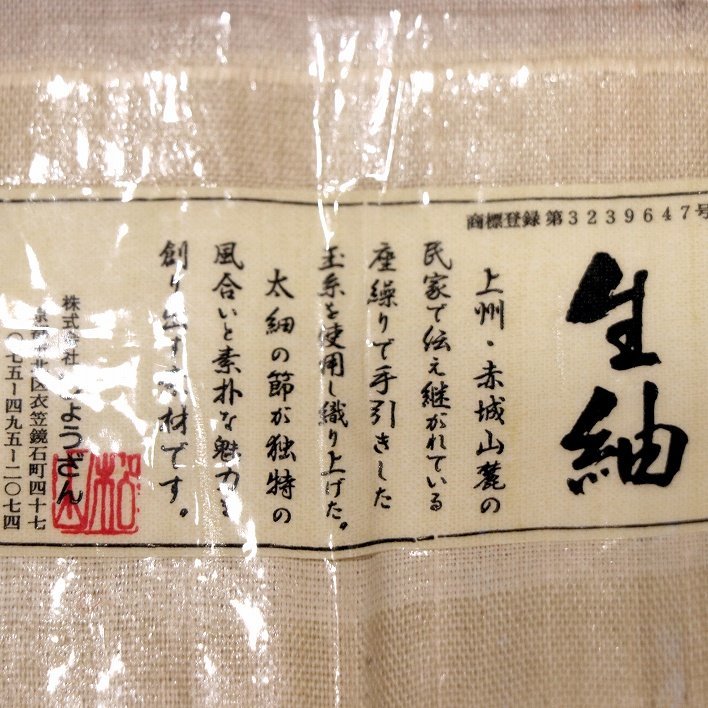 商標登録 第3239647号
生紬
上州・赤城山麓の
民家で伝え継がれている
座繰りで手引きした
玉糸を使用し織り上げた。
太細の節が独特の
風合いと素朴な魅力を
創り出す素材です。
株式会社 しょうざん
京都市北区衣笠鏡石町四十七
〇七五ー四九五ー二〇七四